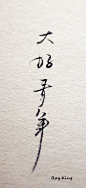 大好年华
Ray King